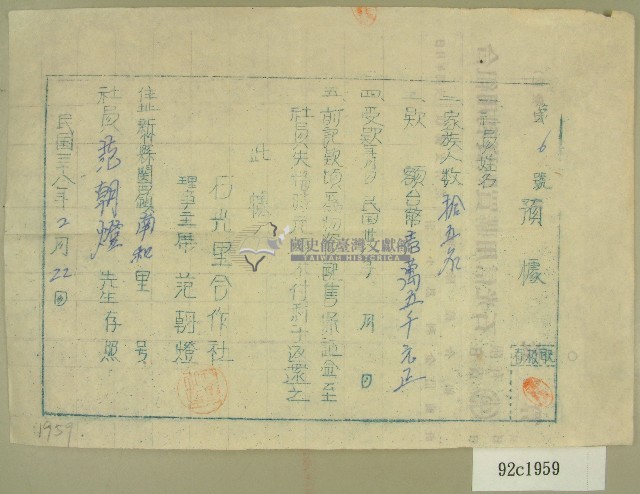 第6號 預據
一社員姓名
二家族人數 拾五名
三款 額台幣壹萬五千元正
四受款年月日民國 年 月 日
五前記款項為物品配售保証金至
社員失 付利子返還之
此據
石光里合作社
理事主席 范朝燈
住址新竹縣關西鎮南和里 號
社員 范朝燈 先生存照
民國三八年2月22日
國史館臺灣文獻館
TAIWAN HISTORICA
1959
92c1959